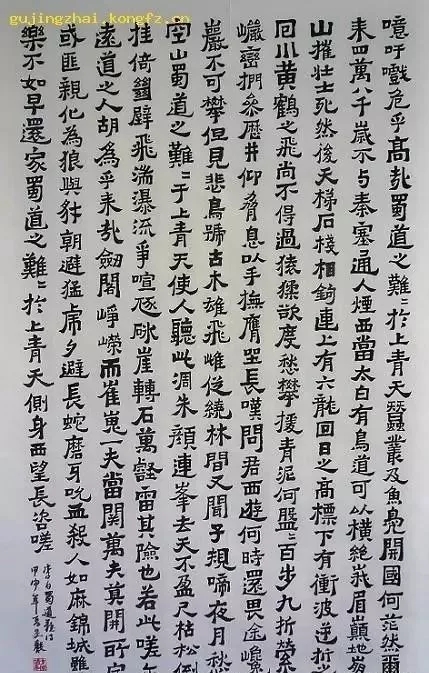 gujingzhai.kongfz.cn
噫吁戲危乎高哉蜀道之難〻於上青天蠶叢及魚鳧開國何茫然爾
来四萬八千歲不与秦塞通人煙西當太白有鳥道可以橫絶峩眉巔地崩
山摧壮士死然後天梯石棧相鉤連上有六龍回日之高標下有衝波逆折之
回川黄鶴之飛尚不得過猿猱欲度愁攀援青泥何盤〻百步九折縈
巖巒捫參歷井仰脅息以手撫膺坐長嘆問君西遊何時還畏途巉
巖不可攀但見悲鳥號古木雄飛雌從繞林間又聞子規啼夜月愁
空山蜀道之難〻于上青天使人聽此凋朱顔連峯去天不盈尺枯松倒
挂倚絶壁飛湍瀑流爭喧豗砯崖轉石萬壑雷其險也若此嗟尔
遠道之人胡為乎来哉劔閣崢嶸而崔嵬一夫當関萬夫莫開所守
或匪親化為狼與豺朝避猛虎夕避長蛇磨牙吮血殺人如麻錦城雖
樂不如早還家蜀道之難〻於上青天側身西望長咨嗟
李白蜀道難詩
甲申年